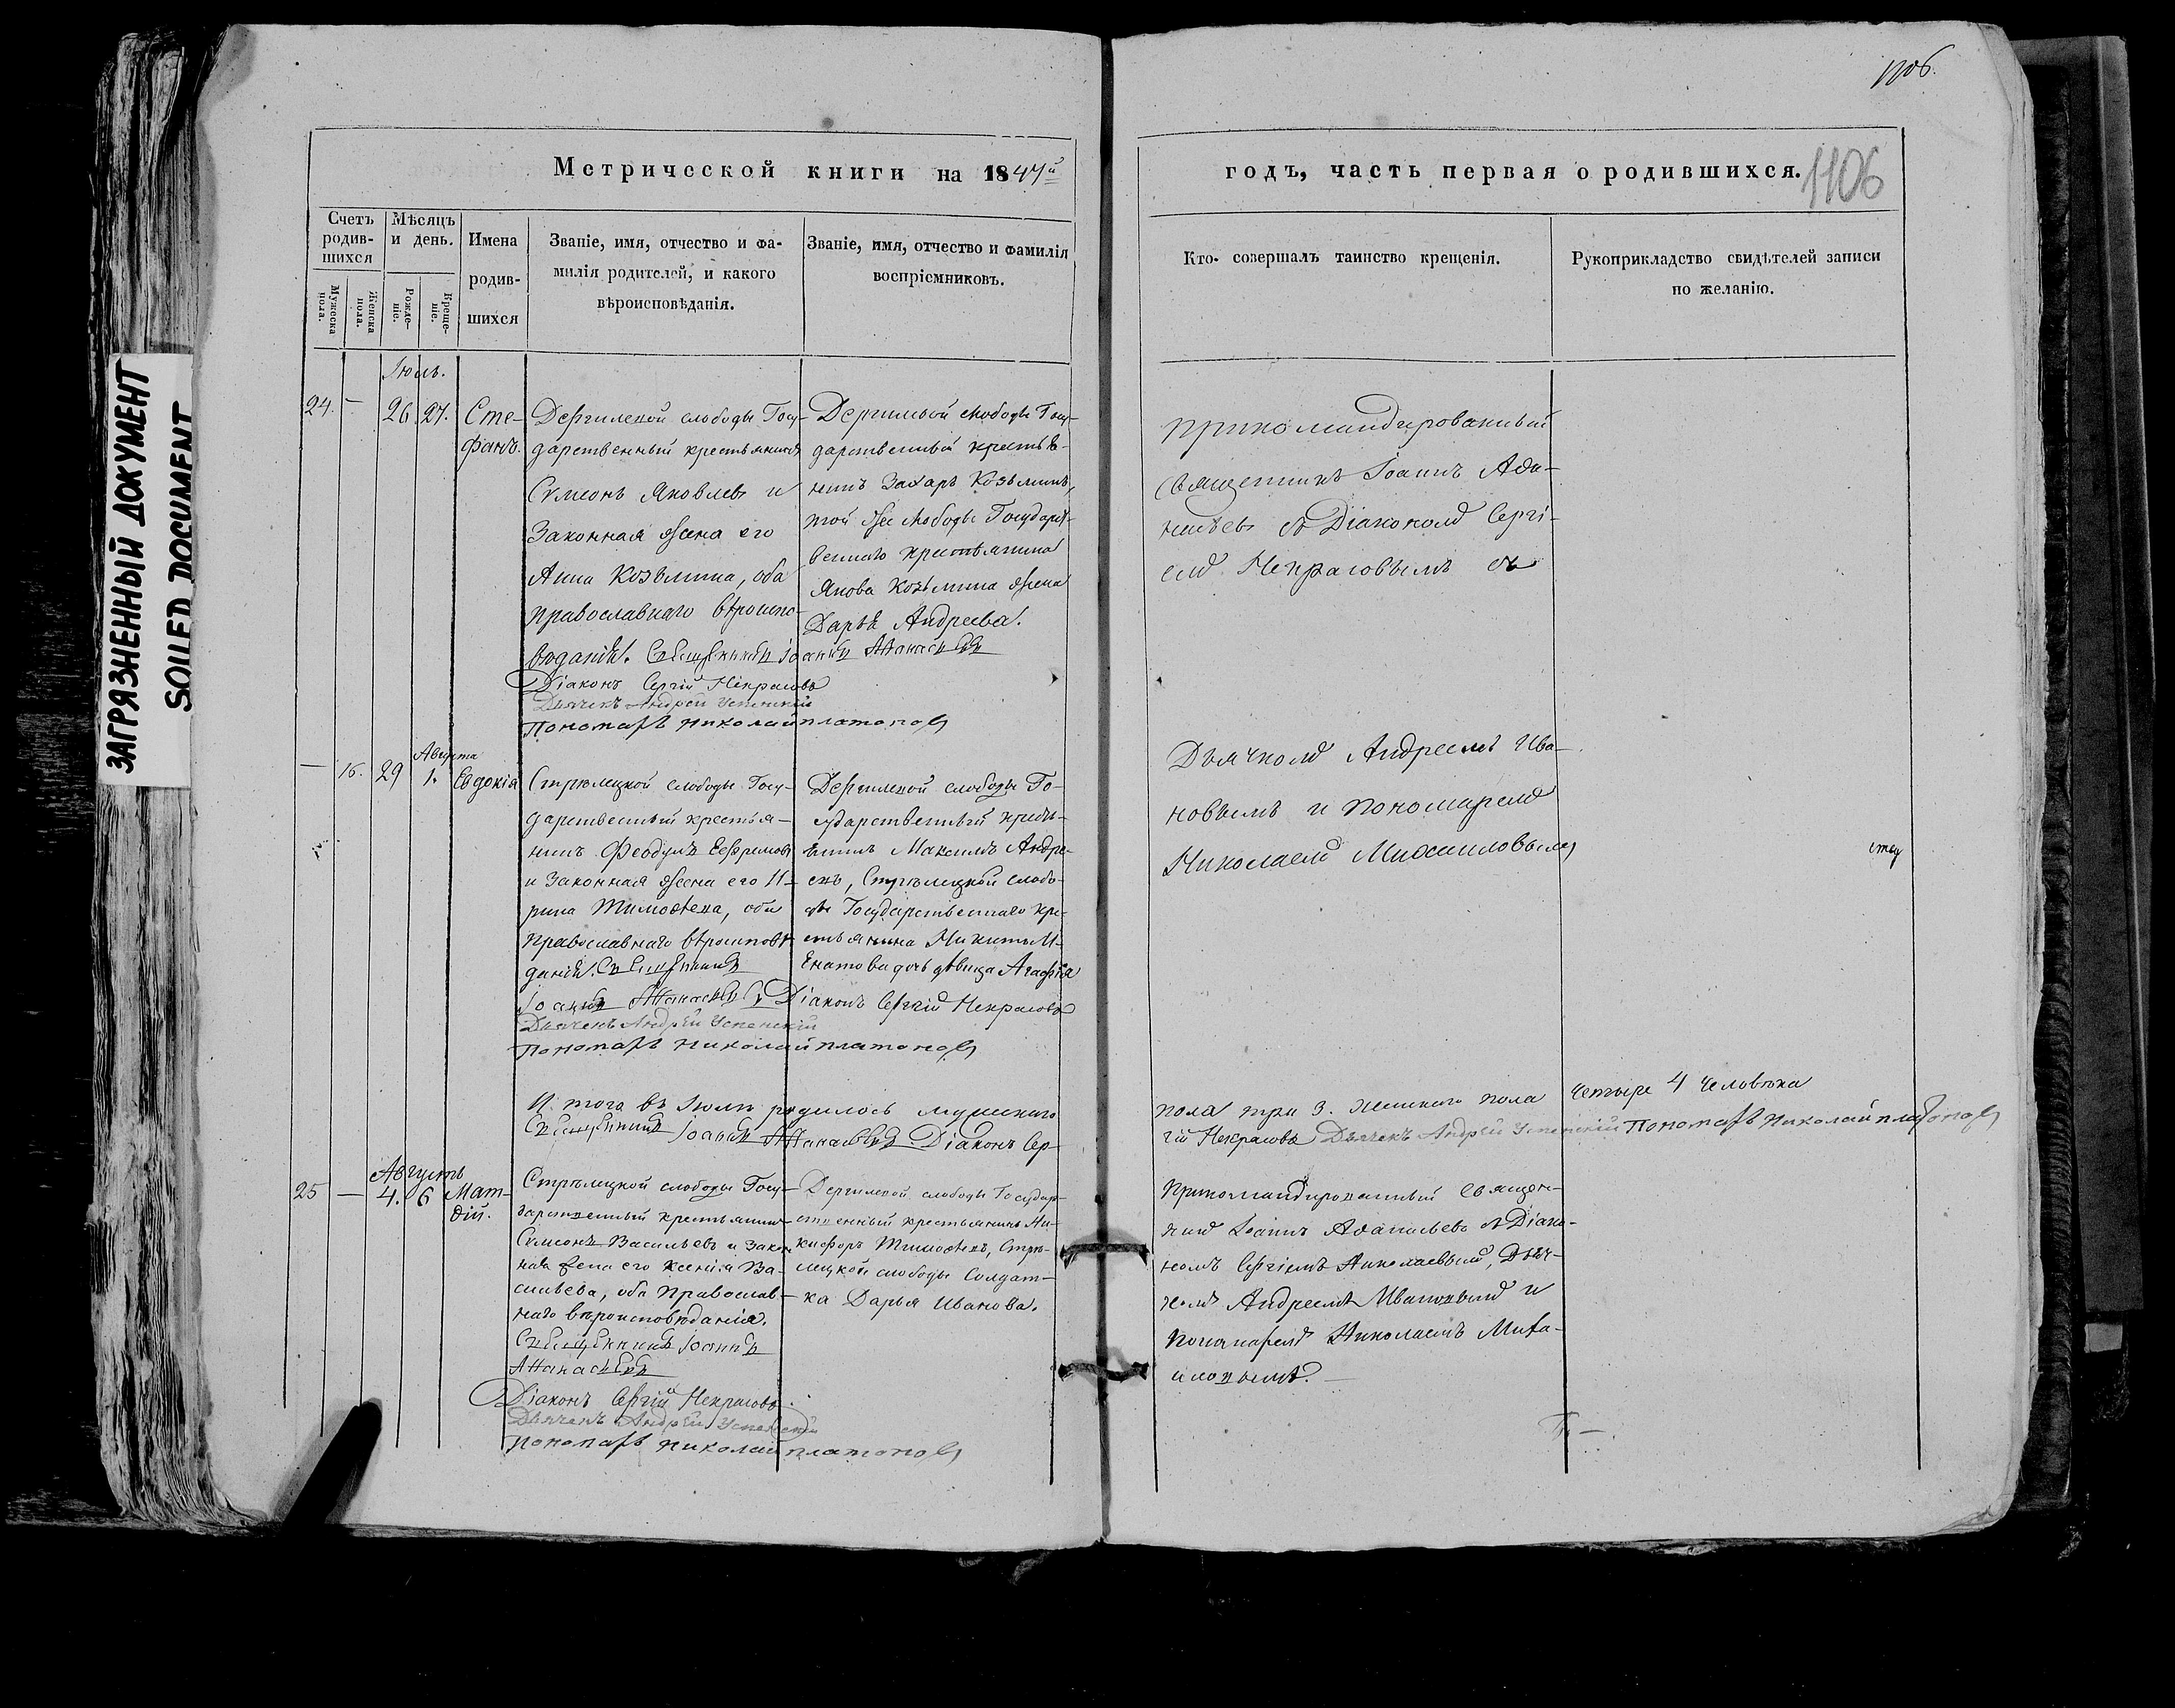 1106.
Метрической книги на 1847й
годъ, часть первая о родившихся.
1106
Счетъ родив-шихся
Мѣсяцъ и день.
Мужеска пола.
Женска пола.
Рожде-ніе.
Креще-ніе.
Имена родив-шихся
Званіе, имя, отчество и фа-
милія родителей, и какого
вѣроисповѣданія.
Званіе, имя, отчество и фамилія
воспріемниковъ.
Кто совершалъ таинство крещенія.
Рукоприкладство свидѣтелей записи
по желанію.
ЗАГРЯЗНЕННЫЙ ДОКУМЕНТ
SOILED DOCUMENT
Іюль.
24. — 26 27. Сте-
фанъ.
слободы Госу-
дарственный крестьянинъ
Сумеонъ Яковлевъ и
Законная жена его
Анна Козьмина, оба
православнаго вѣроиспо-
вѣданія. Священникъ Іоаннъ Аѳанасьевъ
Діаконъ Сергій Некрасовъ
Дьячекъ Андрей Успенскій
Пономарь Николай Платоновъ
слободы Госу-
дарственный крестья-
нинъ Захаръ Козьминъ,
той же слободы Государст-
веннаго крестьянина
Якова Козьмина жена
Дарья Андреева.
Прикомандированный
Священникъ Іоаннъ Аѳа-
насьевъ съ Діакономъ Сергі-
емъ Некрасовымъ съ
Дьячкомъ Андреемъ Ива-
новымъ и Пономаремъ
Николаемъ Михаиловымъ
Августа
— 16. 29 1. Евдокія
Стрѣлецкой слободы Госу-
дарственный крестья-
нинъ Ефремовъ
и Законная жена его И-
рина Тимоѳеева, оба
православнаго вѣроисповѣ-
данія. Священникъ
Іоаннъ Аѳанасьевъ Діаконъ Сергій Некрасовъ
Дьячекъ Андрей Успенскій
Пономарь Николай Платоновъ
слободы Го-
сударственный кресть-
янинъ Максимъ Андре-
евъ, Стрѣлецкой слобо-
ды Государственнаго кре-
стьянина Никиты И-
гнатова дочь дѣвица Агафія
И того въ Іюлѣ родилось мужескаго
пола три 3. женскаго пола четыре 4 человѣка
Священникъ Іоаннъ Аѳанасьевъ Діаконъ Сер-
гій Некрасовъ Дьячекъ Андрей Успенскій Пономарь Николай Платоновъ
Августъ
25 — 4. 6 Мат-
ѳій.
Стрѣлецкой слободы Госу-
дарственный крестьянинъ
Сумеонъ Васильевъ и Закон-
ная жена его Ксенія Ва-
сильева, оба Православ-
наго вѣроисповѣданія.
Священникъ Іоаннъ
Аѳанасьевъ
Діаконъ Сергій Некрасовъ
Дьячекъ Андрей Успенскій
Пономарь Николай Платоновъ
слободы Государ-
ственный крестьянинъ Ни-
кифоръ Тимоѳеевъ, Стрѣ-
лецкой слободы Солдат-
ка Дарья Иванова.
Прикомандированный Священ-
никъ Іоаннъ Аѳанасьевъ съ Діако-
номъ Сергіемъ Николаевымъ, Дьяч-
комъ Андреемъ Ивановымъ и
Пономаремъ Николаемъ Миха-
иловымъ.